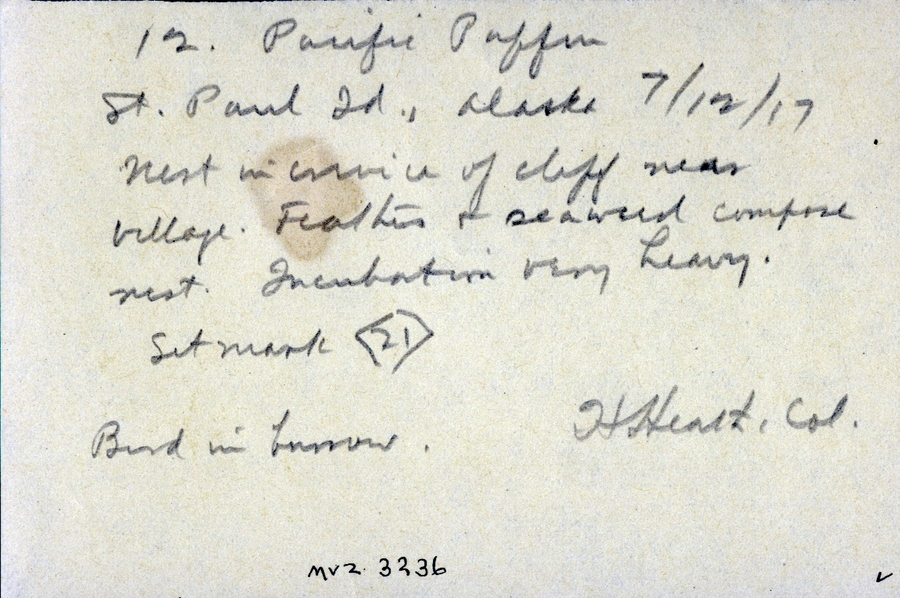 12. Pacific Puffin
St. Paul Id., Alaska 7/12/17
Nest in crevice of cliff near
village. Feathers + seaweed compose
nest. Incubation very heavy.
Set mark <21>
Bird in burrow.
H Heath, Col.
MVZ 3336